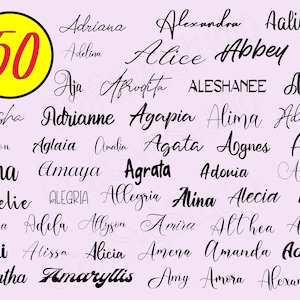 50
Adriana Alexandra
Adelina Alice Abbey
Aja Afrodita ALESHANEE
Adrianne Agapia Alima
Aglaia Amalia Agata Agnes
Amaya Agrata Adonia
ALEGRIA Allegria Alina Alecia
Adela Allyson Amira Althea
Alissa Alicia Amena Amanda
Amaryllis Amy Amora